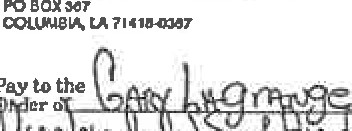 PO BOX 367
COLUMBIA, LA 71418-0367
Pay to the
Order of Gary Lagrange